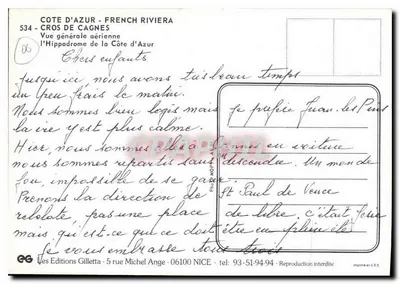 COTE D'AZUR - FRENCH RIVIERA
534 - CROS DE CAGNES
Vue générale aérienne
l'Hippodrome de la Côte d'Azur
06
Chers enfants
Jusqu'ici nous avons très beau temps
un peu frais le matin.
Nous sommes bien logés mais je préfère Juan les Pins
la vie y est plus calme.
Hier, nous sommes allés à en voiture
nous sommes repartis sans descendre. Un monde
fou, impossible de se garer.
Prenons la direction de St Paul de Vence
rebelote, pas une place de libre. C'était
mais, qu'est-ce que ce doit être en plein été
Je vous embrasse tous trois
eg Les Editions Gilletta - 5 rue Michel Ange - 06100 NICE - tel : 93-51-94-94 - Reproduction interdite